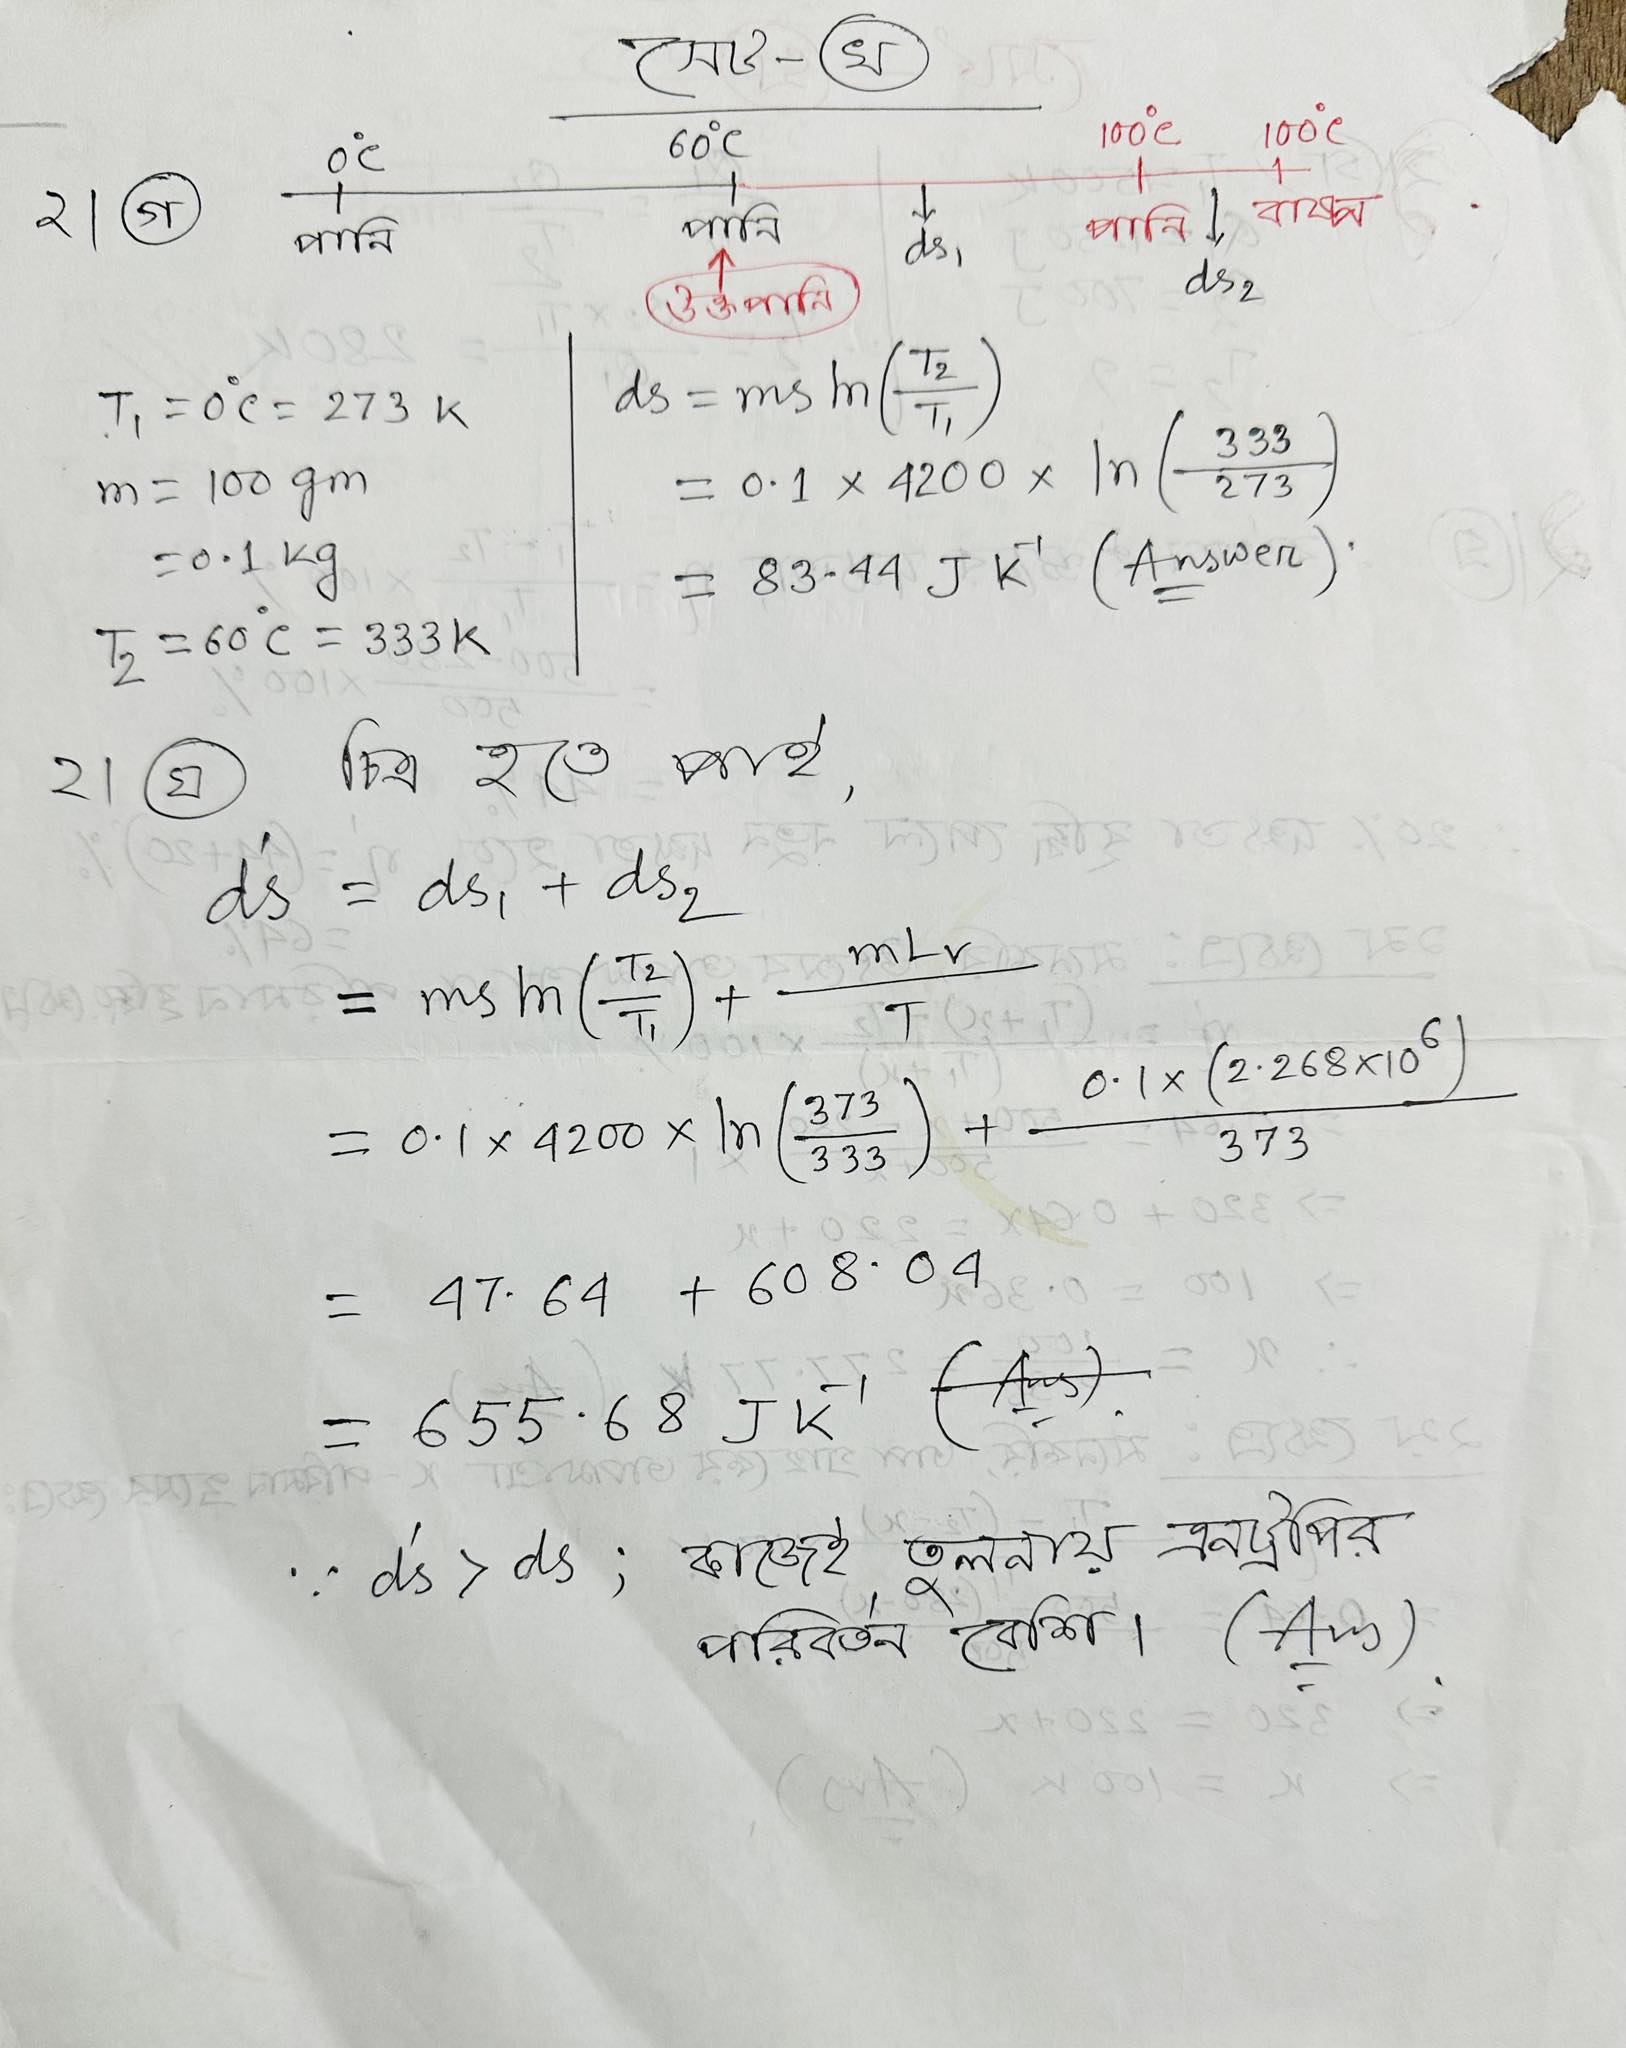 সেট-খ
0°C 60°C 100°C 100°C
২। গ পানি পানি ds₁ পানি বাষ্প
উক্ত পানি ds₂
T₁ = 0°C = 273 K
m = 100 gm
= 0.1 kg
T₂ = 60°C = 333K
ds = ms ln(T₂/T₁)
= 0.1 × 4200 × ln(333/273)
= 83.44 J K⁻¹ (Answer).
২। ঘ চিত্র হতে পাই,
ds' = ds₁ + ds₂
= ms ln(T₂/T₁) + mLv/T
= 0.1 × 4200 × ln(373/333) + 0.1 × (2.268×10⁶)/373
= 47.64 + 608.04
= 655.68 J K⁻¹ (Ans).
∵ ds' > ds ; কাজেই তুলনায় এনট্রপির
পরিবর্তন বেশি। (Ans).